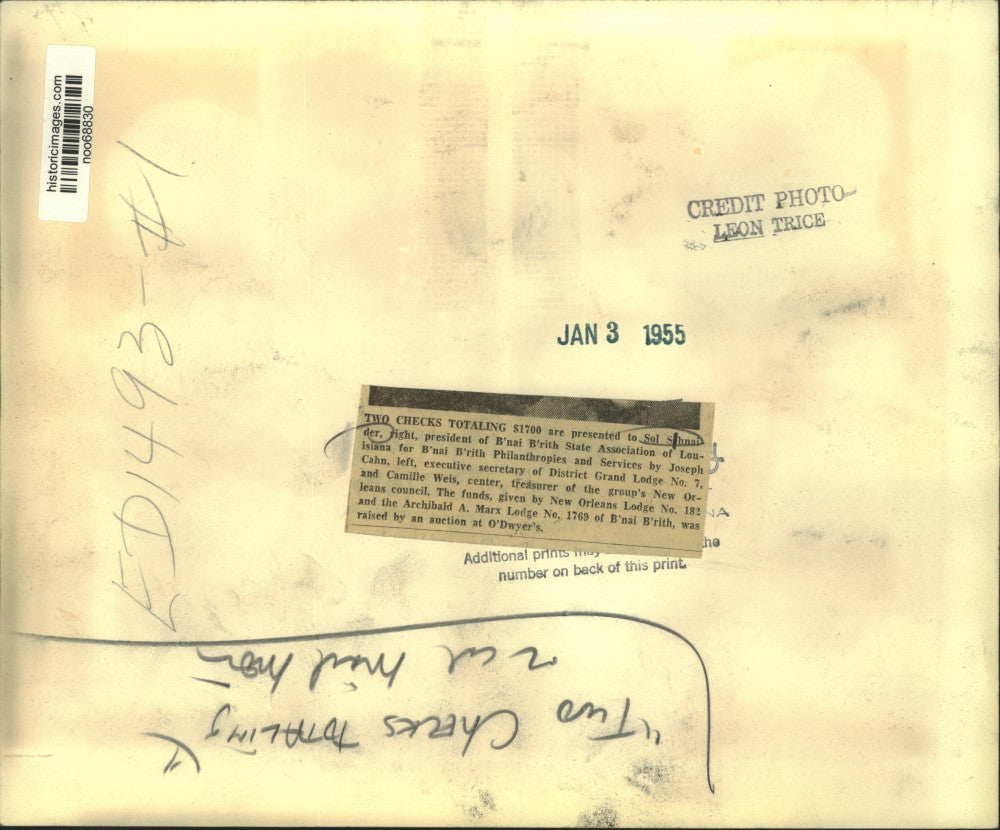 historicimages.com
noo68830
ED1493-#1
CREDIT PHOTO
LEON TRICE
JAN 3 1955
TWO CHECKS TOTALING $1700 are presented to Sol Schnai-
der, right, president of B'nai B'rith State Association of Lou-
isiana for B'nai B'rith Philanthropies and Services by Joseph
Cahn, left, executive secretary of District Grand Lodge No. 7,
and Camille Weis, center, treasurer of the group's New Or-
leans council. The funds, given by New Orleans Lodge No. 182
and the Archibald A. Marx Lodge No. 1769 of B'nai B'rith, was
raised by an auction at O'Dwyer's.
Additional prints may the
number on back of this print.
"Two Checks TOTALING
2 col